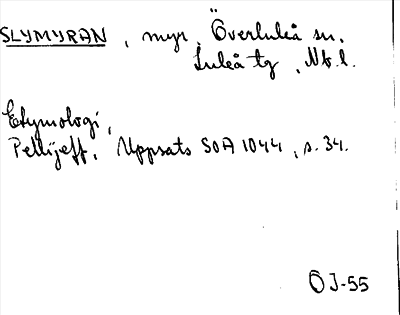 SLYMYRAN, myr, Överluleå sn.
Luleå tg, Nb. l.
Etymologi,
Pellijeff, Uppsats SOA 1044, s. 34.
ÖJ-55